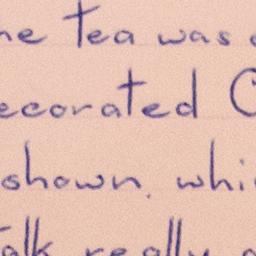 he tea was
ecorated C
shown. whi
talk really